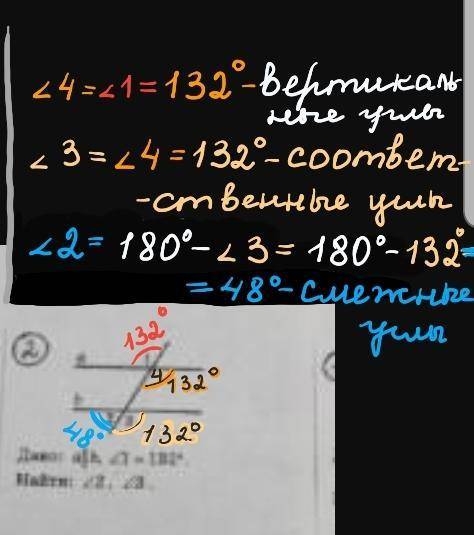 ∠4=∠1=132°-вертикаль
ные углы
∠3=∠4=132°-соответ-
-ственные углы
∠2=180°-∠3=180°-132°=
=48°-смежные
углы
2
132°
a
1
4 132°
b
48° 132°
Дано: a||b, ∠1=132°.
Найти: ∠2, ∠3.